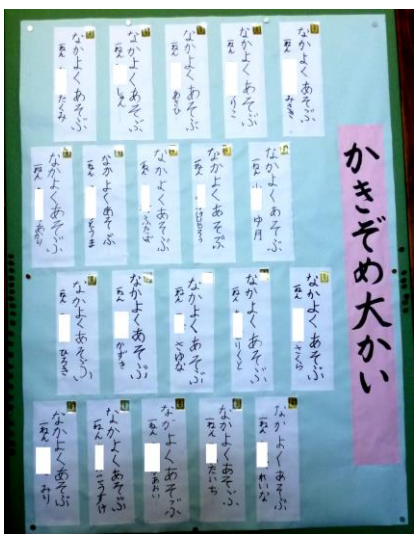 かきぞめ大かい
なかよくあそぶ
一ねん みさき
なかよくあそぶ
一ねん りこ
なかよくあそぶ
一ねん あさひ
なかよくあそぶ
一ねん しゅん
なかよくあそぶ
一ねん たくみ
なかよくあそぶ
一ねん 小 ゆ月
なかよくあそぶ
一ねん
なかよくあそぶ
一ねん ふたば
なかよくあそぶ
一ねん そうま
なかよくあそぶ
一ねん あかり
なかよくあそぶ
一ねん さくら
なかよくあそぶ
一ねん りくと
なかよくあそぶ
一ねん さゆな
なかよくあそぶ
一ねん かずき
なかよくあそぶ
一ねん ひろき
なかよくあそぶ
一ねん れいな
なかよくあそぶ
一ねん だいち
なかよくあそぶ
一ねん あおい
なかよくあそぶ
一ねん こうすけ
なかよくあそぶ
一ねん みり